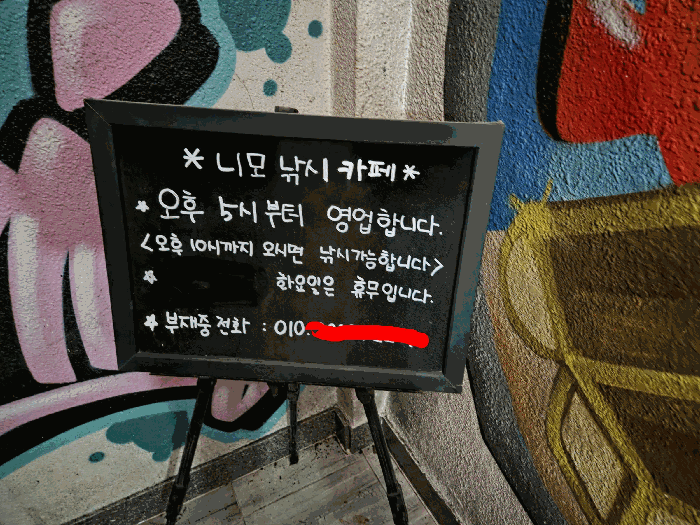 * 니모 낚시 카페 *
* 오후 5시부터 영업합니다.
<오후 10시까지 오시면 낚시가능합니다>
* 화요일은 휴무입니다.
* 부재중 전화 : 010.